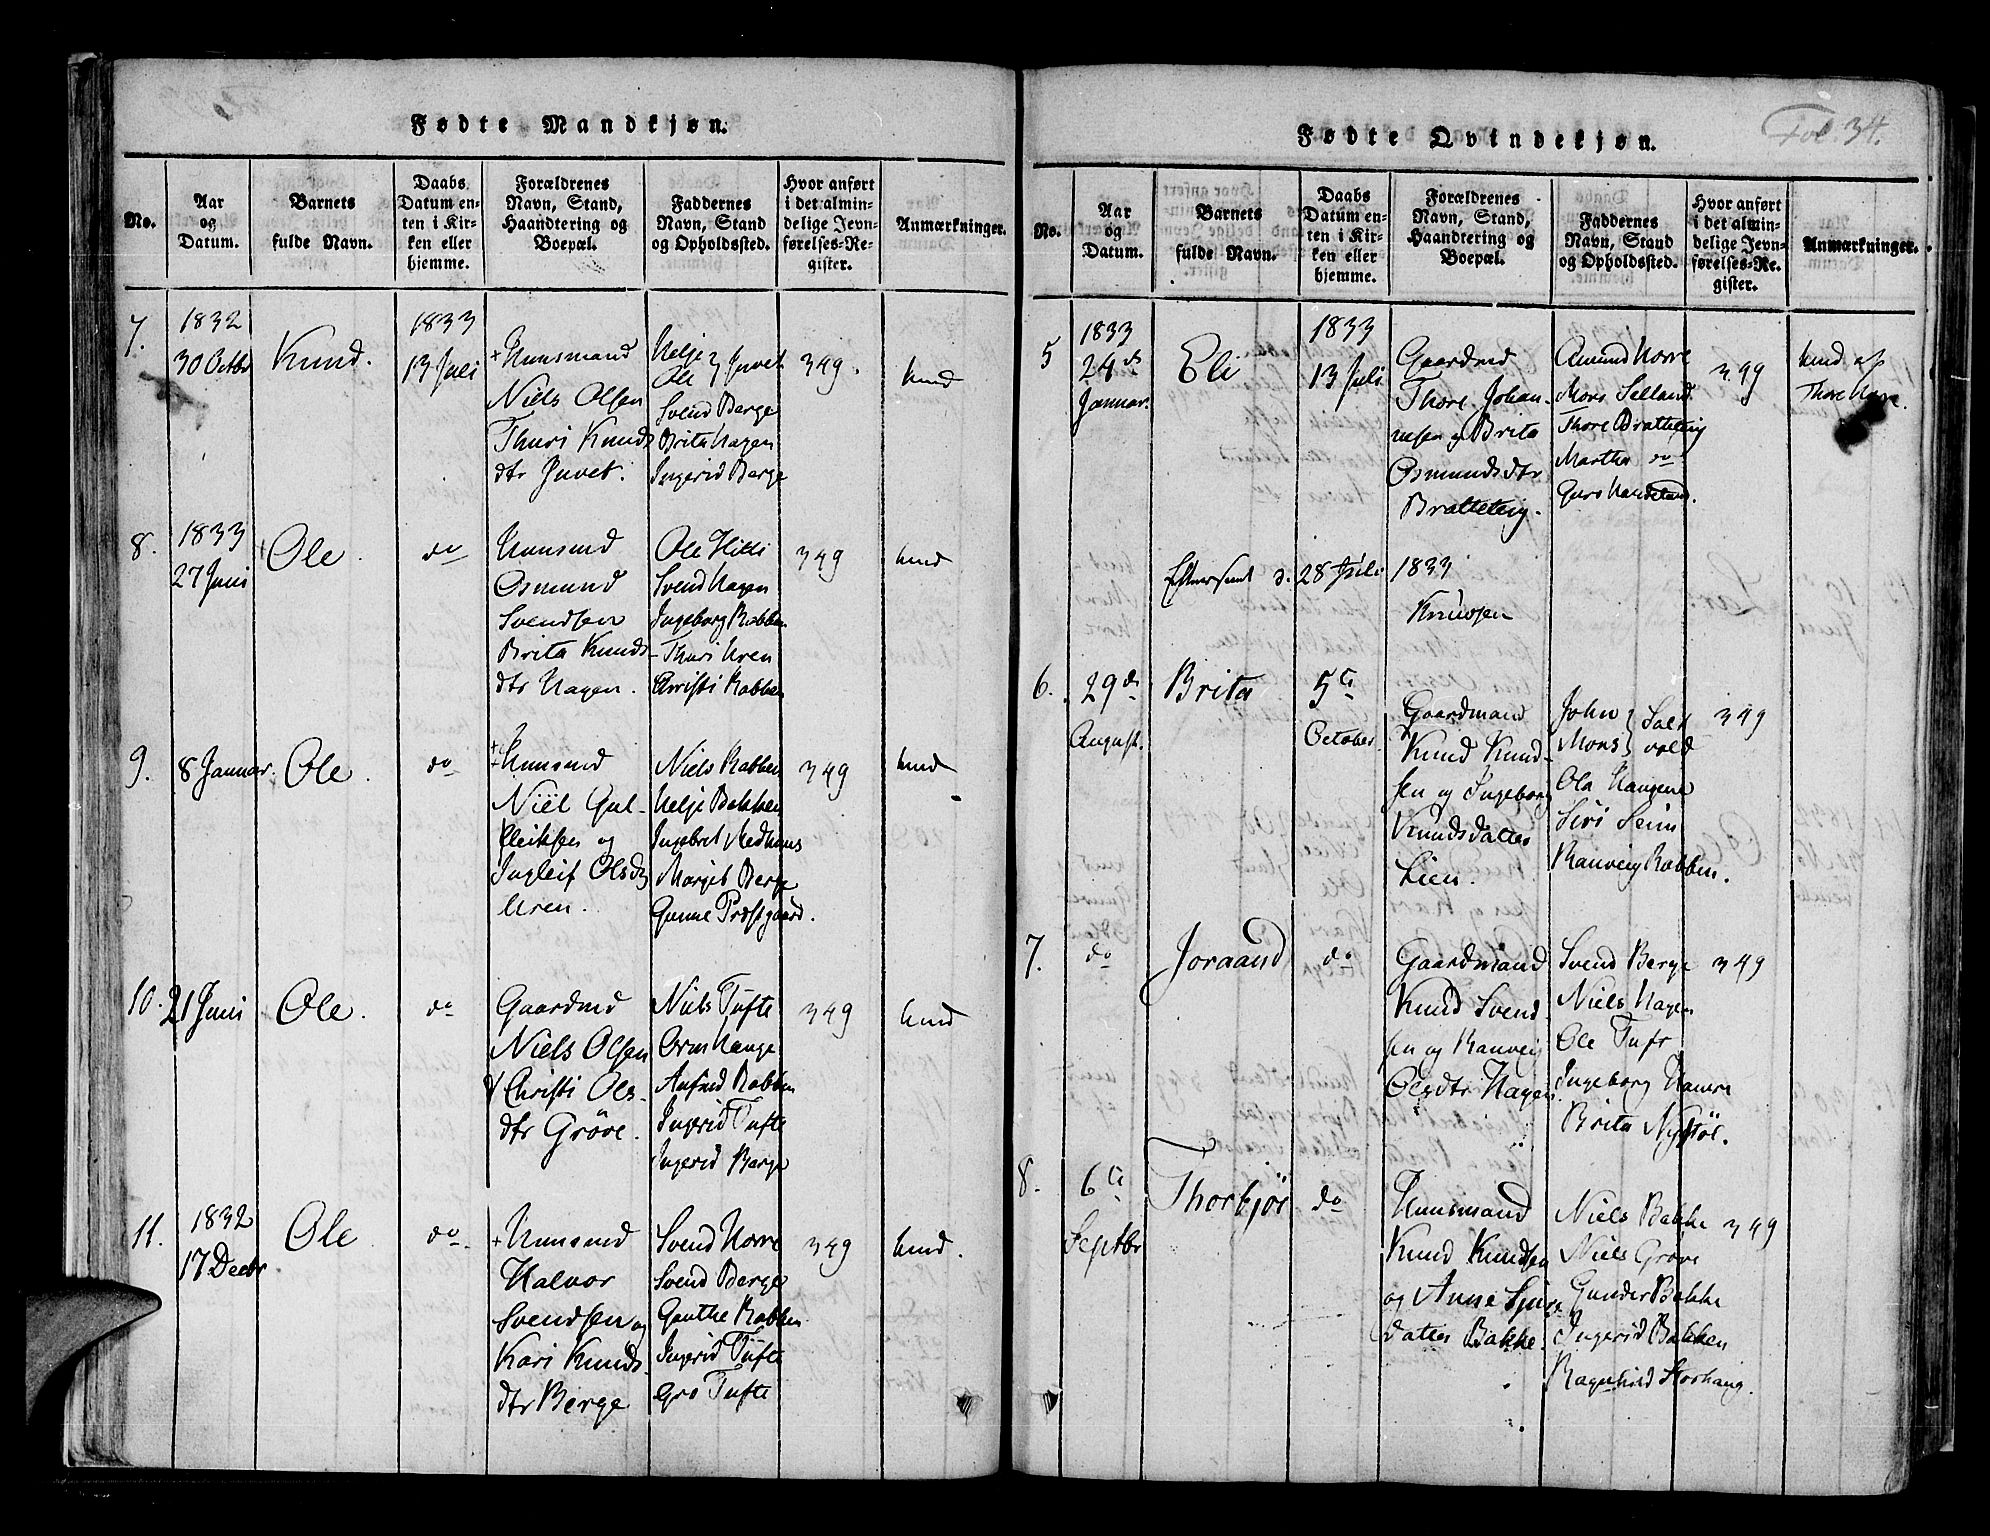 Fødte Mandkjøn.
No.
Aar
og
Datum.
Barnets
fulde Navn.
Daabs
Datum en-
ten i Kir-
ken eller
hjemme.
Forældrenes
Navn, Stand,
Haandtering og
Boepæl.
Faddernes
Navn, Stand
og Opholdssted.
Hvor anført
i det almin-
delige Jevn-
førelses-Re-
gister.
Anmærkninger.
7.
1832
30 Octbr
Knud.
1833
13 Juli
+ Huusmand
Niels Olsen
Thuri Knuds
dtr Juvet.
Helje } Juvet
Ole
Svend Berge
Brita Hagen
Ingerid Berge
349.
8.
1833
27 Juni
Ole
do
Huusmd
Osmund
Svendsen
Brita Knuds-
dtr Hagen.
Ole
Svend Hagen
Ingeborg Rabben
Thuri Uren
Christi Rabben
349
9.
8 Januar.
Ole.
do
+ Huusmd
Niel Gul-
leiksen og
Ingleif Olsdtr
Uren.
Niels Rabben
Helje Bakken
Ingebret
Margit Berge
Gunne Præstgaard.
349
10.
21 Juni
Ole.
do
Gaardmd
Niels Olsen
Christi Ols-
dtr Grøve.
Niels Tufte
Orm Hauge
Rabben
Ingerid Tufte
Ingerid Berge
349
11.
1832
17 Decbr
Ole
do
+ Huusmd
Halvor
Svendsen og
Kari Knuds
dtr Berge
Svend Norre
Svend Berge
Gunthe Rabben
Ingerid Tufte
Gro Tufte
349
Fødte Qvindekjøn.
Fol. 34.
No.
Aar
og
Datum.
Barnets
fulde Navn.
Daabs
Datum en-
ten i Kir-
ken eller
hjemme.
Forældrenes
Navn, Stand,
Haandtering og
Boepæl.
Faddernes
Navn, Stand
og Opholdssted.
Hvor anført
i det almin-
delige Jevn-
førelses-Re-
gister.
Anmærkninger.
5
1833
24de
Januar.
Eli
1833
13 Juli
Gaardmd
Thore Johan-
nesen og Brita
Osmundsdtr
Bratteteig.
Amund Norre
Mons Selland.
Thore Bratteteig
Martha do
Guro
399
Thore Norre.
Efterseet d. 28 Juli 1833
Knudsen
6.
29de
August.
Brita
5te
October.
Gaardmand
Knud Knud-
sen og Ingeborg
Knudsdatter
Lien.
John }
Mons }
Ola Haugene
Siri Seim
Ranveig Rabben.
349
7.
do
Joraand
do
Gaardmand
Knud Svend-
sen og Ranveig
Olsdtr Hagen
Svend Berge
Niels Hagen
Ole Tuft
Ingeborg Hamre
Brita Nystøl.
349
8.
6te
Septbr
Thorbjør
do
Huusmand
Knud Knudsen
og Anna Sjurs
datter Bakke.
Niels Bakke
Niels Grøve
Gunder Bakke
Ingerid Bakken
Ragnhild Storhaug.
349